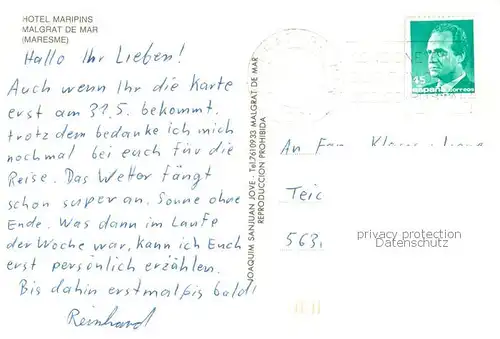 HOTEL MARIPINS
MALGRAT DE MAR
(MARESME)
Hallo Ihr Lieben!
Auch wenn Ihr die Karte
erst am 31.5. bekommt.
trotzdem bedanke ich mich
nochmal bei euch für die
Reise. Das Wetter fängt
schon super an. Sonne ohne
Ende. Was dann im Laufe
der Woche war, kann ich Euch
erst persönlich erzählen.
Bis dahin erstmal bis bald!
Reinhard
JOAQUIM SANJUAN JOVE - Tel. 7610933 MALGRAT DE MAR
REPRODUCCION PROHIBIDA
45
España correos
An Fam
Teic
563
privacy protection
Datenschutz